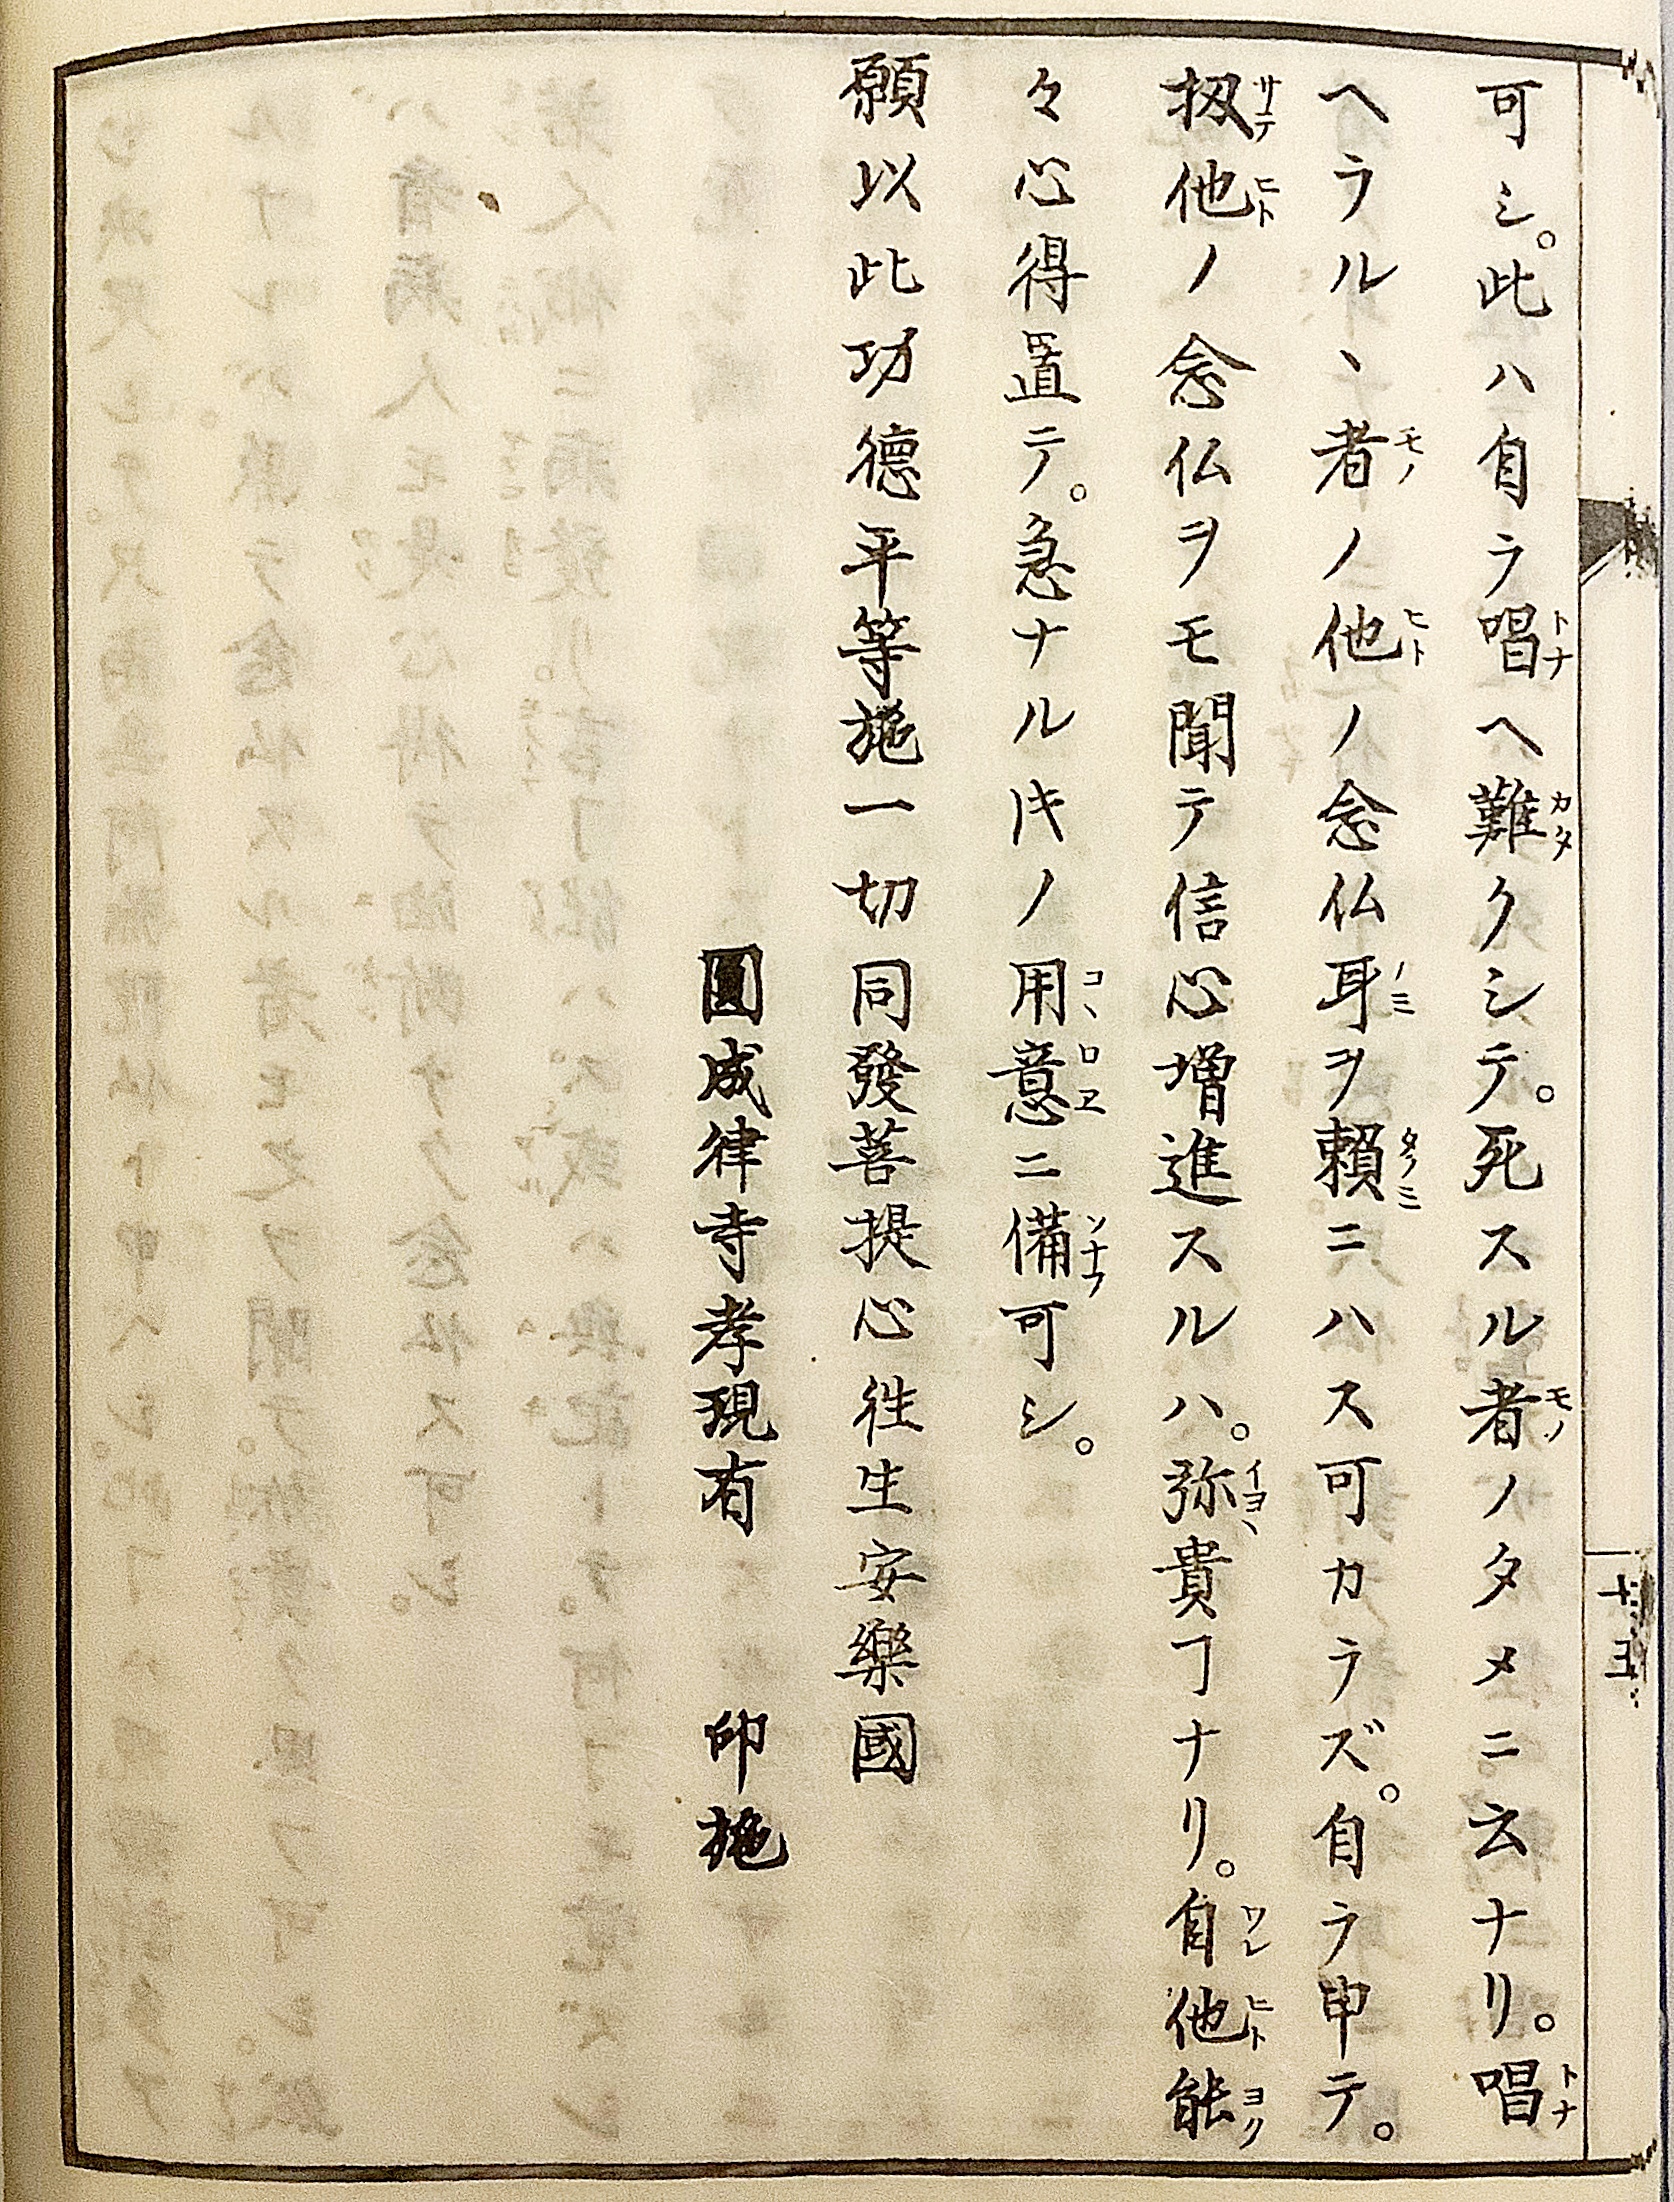 可シ。此ハ自ラ唱ヘ難クシテ。死スル者ノタメニ云ナリ。唱
ヘラルヽ者ノ他ノ念仏耳ヲ頼ニハス可カラズ。自ラ申テ。
扨他ノ念仏ヲモ聞テ信心増進スルハ。弥貴ヿナリ。自他能
々心得置テ。急ナルㇳキノ用意ニ備可シ。
願以此功德平等施一切同發菩提心徃生安樂國
圓成律寺孝現有 印施
十五